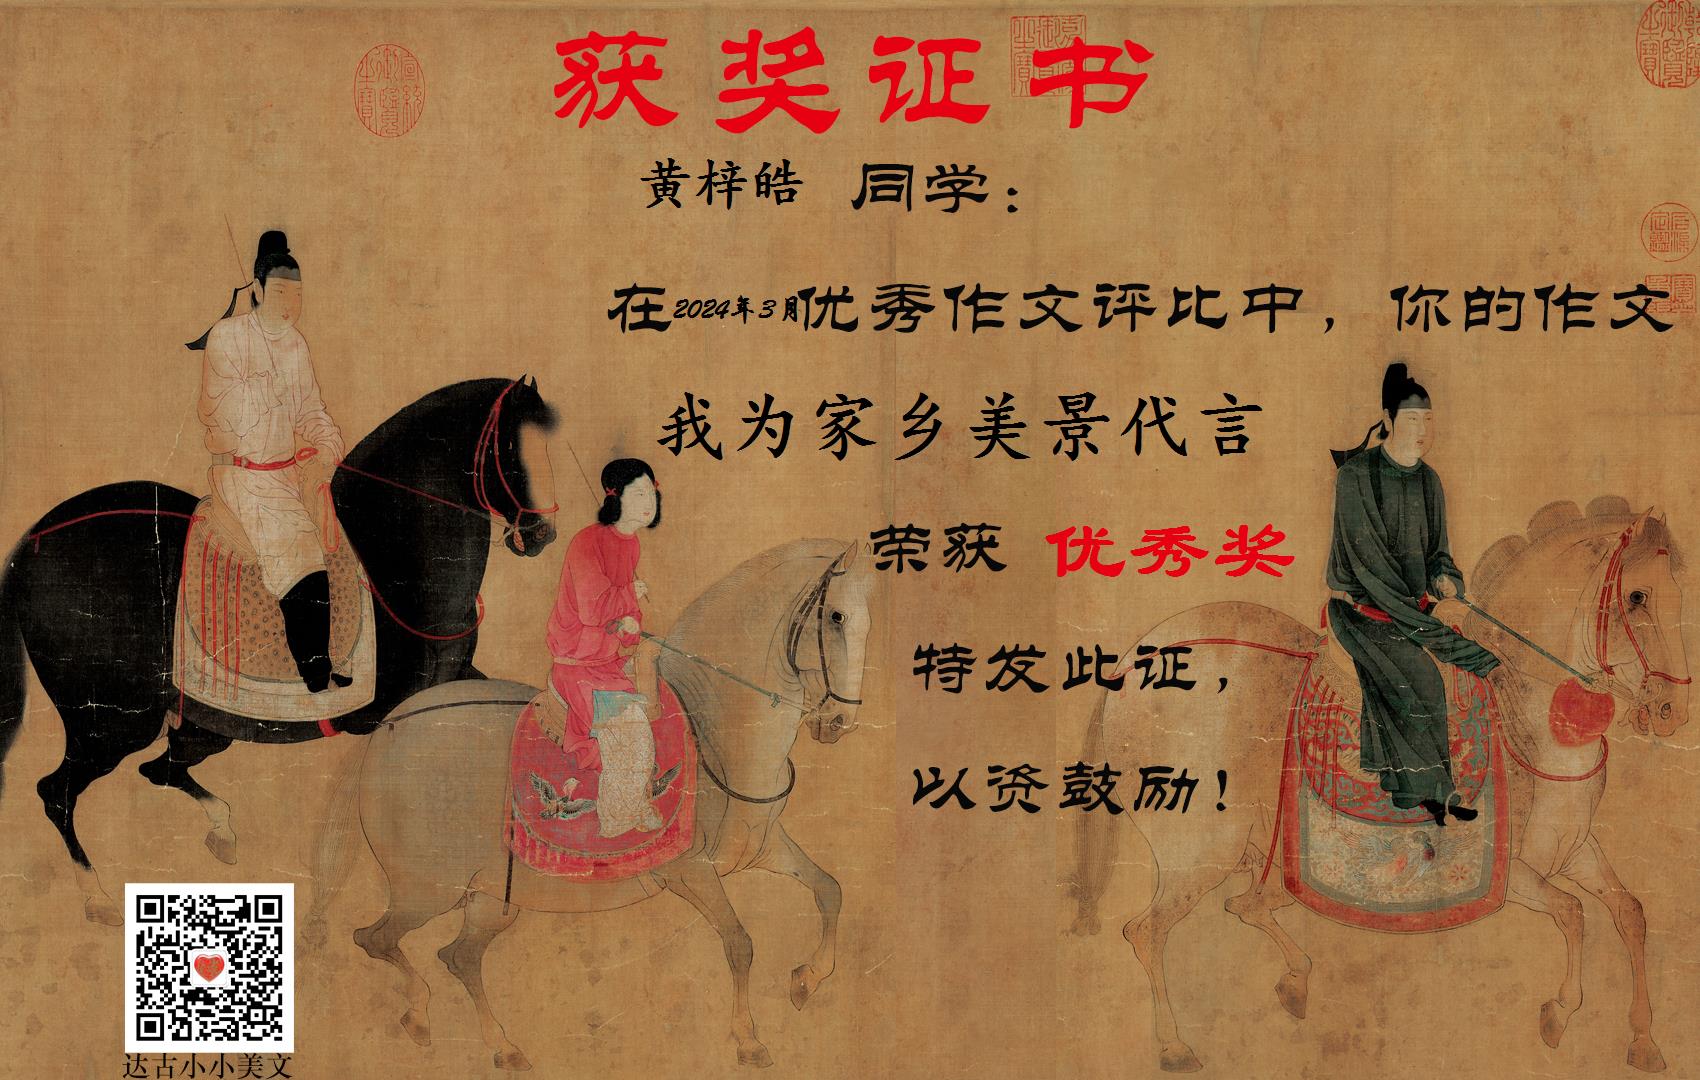 获奖证书
黄梓皓 同学：
在2024年3月优秀作文评比中，你的作文
我为家乡美景代言
荣获 优秀奖
特发此证，
以资鼓励！
达古小小美文